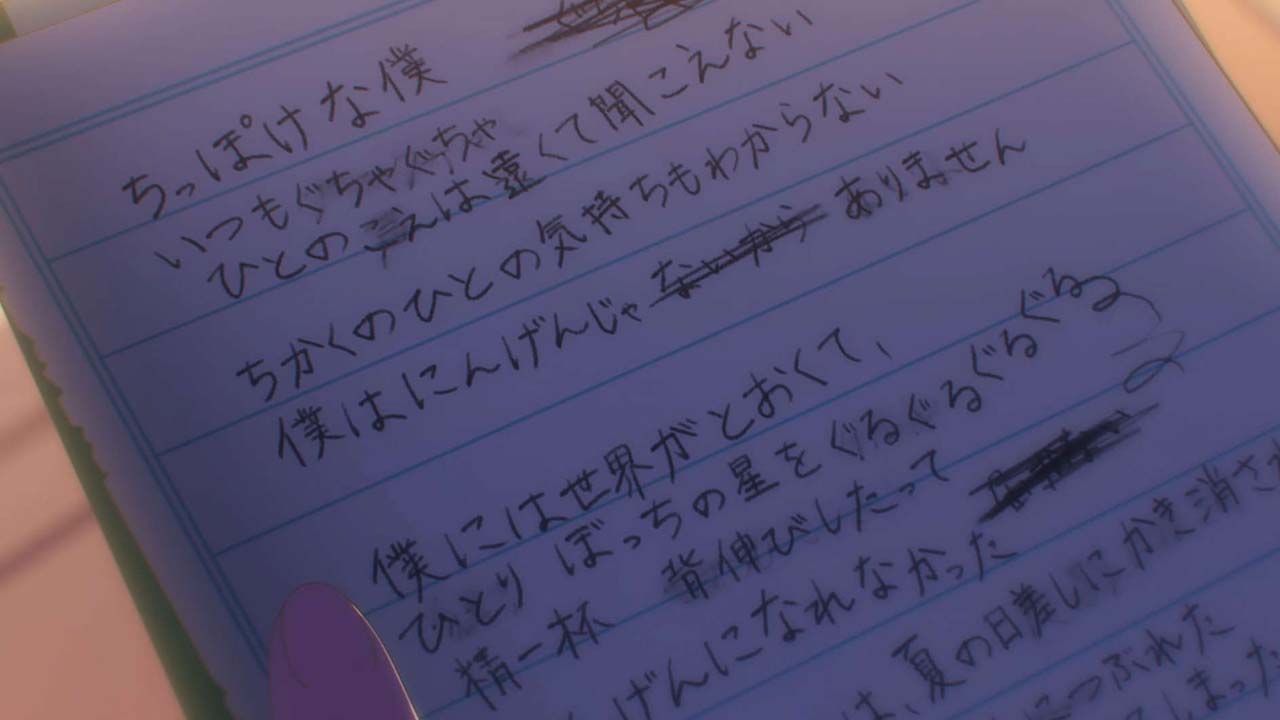 ちっぽけな僕
いつもぐちゃぐちゃ
ひとのこえは遠くて聞こえない
ちかくのひとの気持ちもわからない
僕はにんげんじゃないから ありません
僕には世界がとおくて、
ひとりぼっちの星をぐるぐるぐるぐるる
精一杯 背伸びしたって
げんになれなかった
は、夏の日差しにかき消され
につぶれた
てしまった